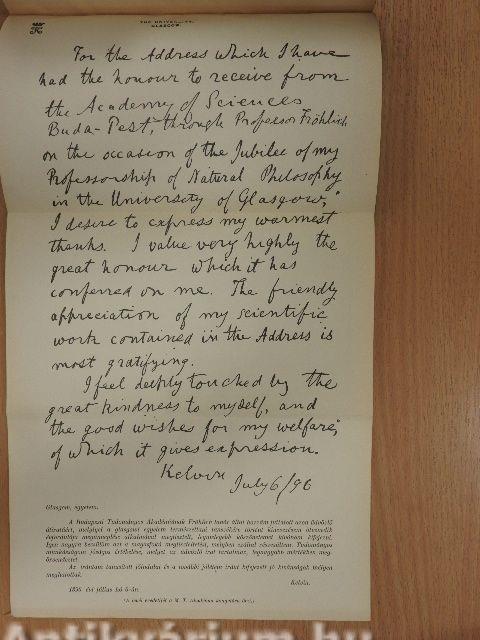 THE UNIVERSITY,
GLASGOW.
For the Address which I have
had the honour to receive from
the Academy of Sciences
Buda-Pest, through Professor Fröhlich
on the occasion of the Jubilee of my
Professorship of Natural Philosophy
in the University of Glasgow,
I desire to express my warmest
thanks. I value very highly the
great honour which it has
conferred on me. The friendly
appreciation of my scientific
work contained in the Address is
most gratifying.
I feel deeply touched by the
great kindness to myself, and
the good wishes for my welfare,
of which it gives expression.
Kelvin
July 6/96
Glasgow, egyetem.
A Budapesti Tudományos Akadémiának Fröhlich tanár által hozzám juttatott azon üdvözlő
átiratáért, melylyel a glasgowi egyetem természettani tanszékére történt kineveztetésem ötvenedik
évfordulója
megtisztelt, legmelegebb köszönetemet kívánom kifejezni.
Igen nagyra becsülöm azt a
megtiszteltetést, melyben
részesültem. Tudományos
munkásságom
értékelése, melyet az üdvözlő irat tartalmaz, legnagyobb mértékben meg-
örvendeztet.
Az irántam tanusított jóindulat és a
jólétem iránt kifejezett jó kívánságok mélyen
meghatottak.
Kelvin.
1896 évi július hó 6-án.
(A levél eredetijét a M. T. Akadémia
őrzi.)
Antikvárium.hu